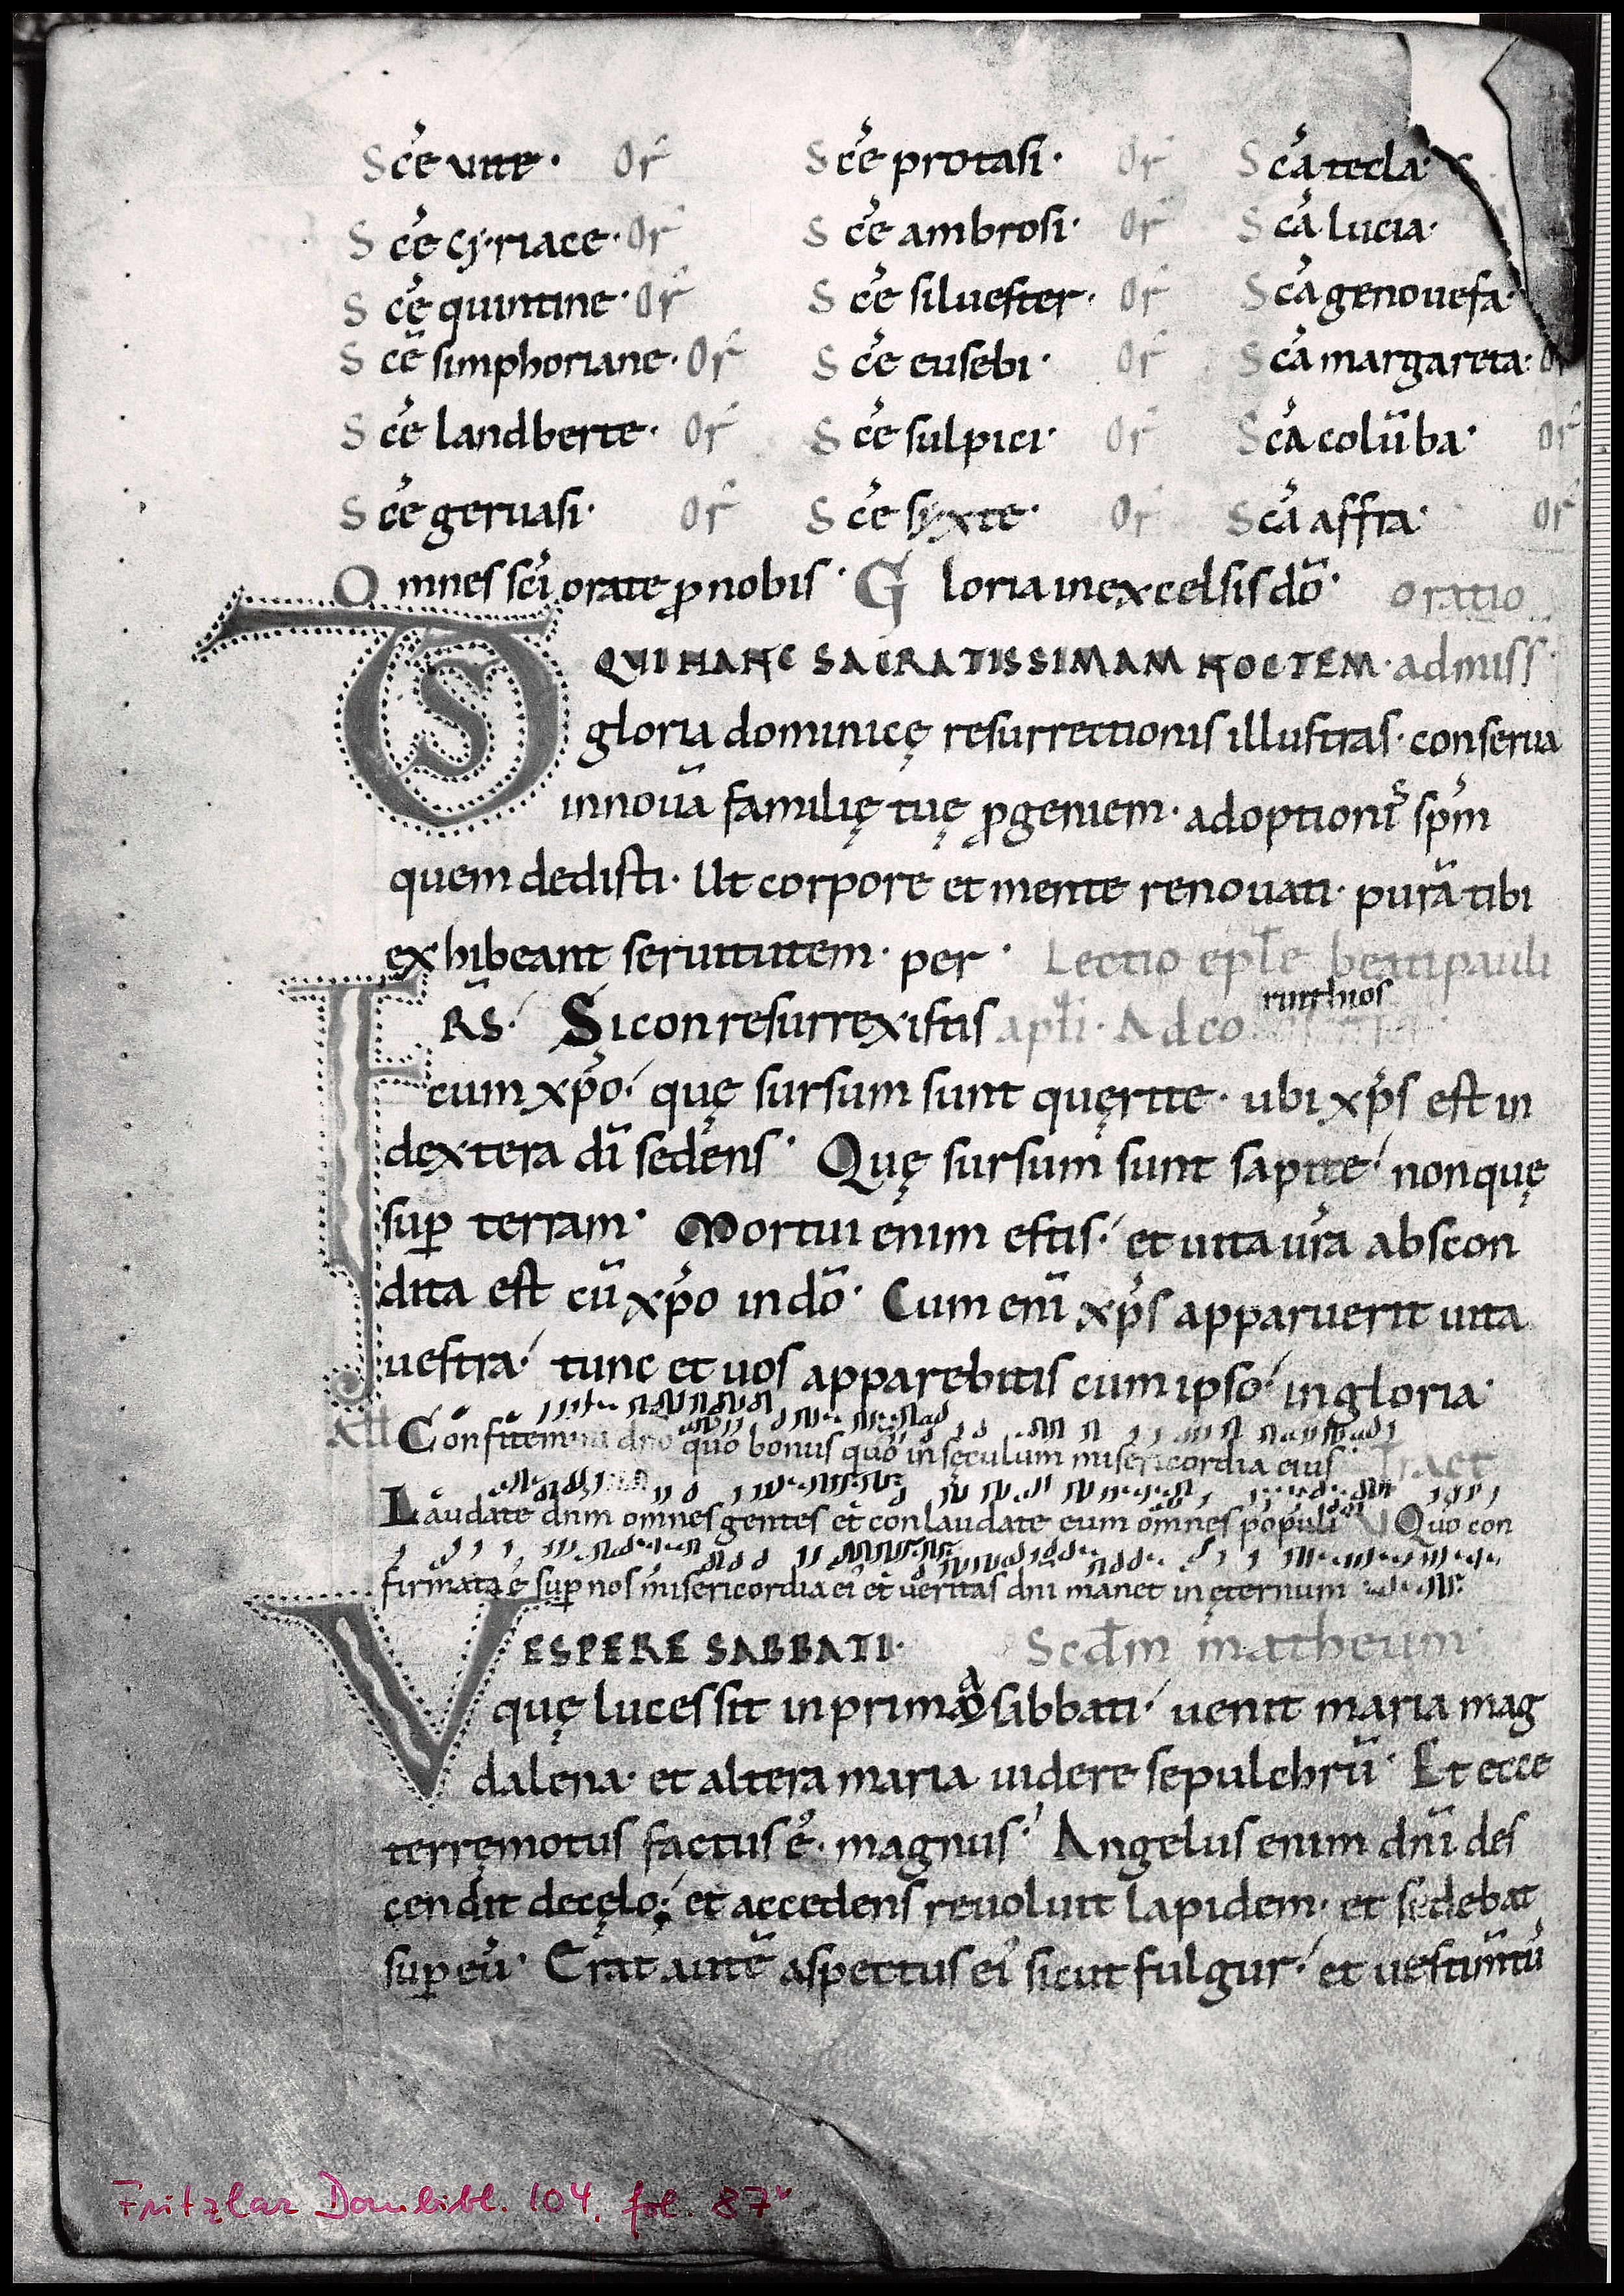 Sc̄e uite · Or̄ Sc̄e protasi · Or̄ Sc̄a tecla ·
Sc̄e cẏriace · Or̄ Sc̄e ambrosi · Or̄ Sc̄a lucia ·
Sc̄e quintine · Or̄ Sc̄e siluester · Or̄ Sc̄a genouefa ·
Sc̄e simphoriane · Or̄ Sc̄e eusebi · Or̄ Sc̄a margareta · Or̄
Sc̄e landberte · Or̄ Sc̄e sulpici · Or̄ Sc̄a colūba · Or̄
Sc̄e geruasi · Or̄ Sc̄e sẏxte · Or̄ Sc̄a affra · Or̄
Omnes sc̄i orate ꝓ nobis · Gloria in excelsis dō · oratio
DS QUI HANC SACRATISSIMAM NOCTEM · ad miss
gloria dominicę resurrectionis illustras · conserua
in nouā familię tuę ꝓgeniem · adoptionis sp̄m
quem dedisti · Ut corpore et mente renouati · purā tibi
exhibeant seruitutem · per · Lectio ep̄le beati pauli
FRS · Si conresurrexistis apl̄i · Ad co rinthios
cum xp̄o · quę sursum sunt quęrite · ubi xp̄s est in
dextera dī sedens · Quę sursum sunt sapite · non quę
sup̄ terram · Mortui enim estis · et uita ur̄a abscon
dita est cū xp̄o in dō · Cum enī xp̄s apparuerit uita
uestra · tunc et uos apparebitis cum ipso · in gloria ·
All Confitemini dn̄o quō bonus quō in sęculum misericordia eius Tract
Laudate dn̄m omnes gentes et conlaudate eum om̄nes populi V Quō con
firmata ē sup̄ nos misericordia ei᾿ et ueritas dn̄i manet in ęternum
VESPERE SABBATI · Scd̄m matheum
quę lucessit in prima sabbati · uenit maria mag
dalena · et altera maria uidere sepulchrū · Et ecce
terręmotus factus ē · magnus · Angelus enim dn̄i des
cendit de cęlo · et accedens reuoluit lapidem · et sedebat
sup̄ eū · Erat autē aspectus ei᾿ sicut fulgur · et uestim̄tū
Fritzlar Dombibl. 104, fol. 87v